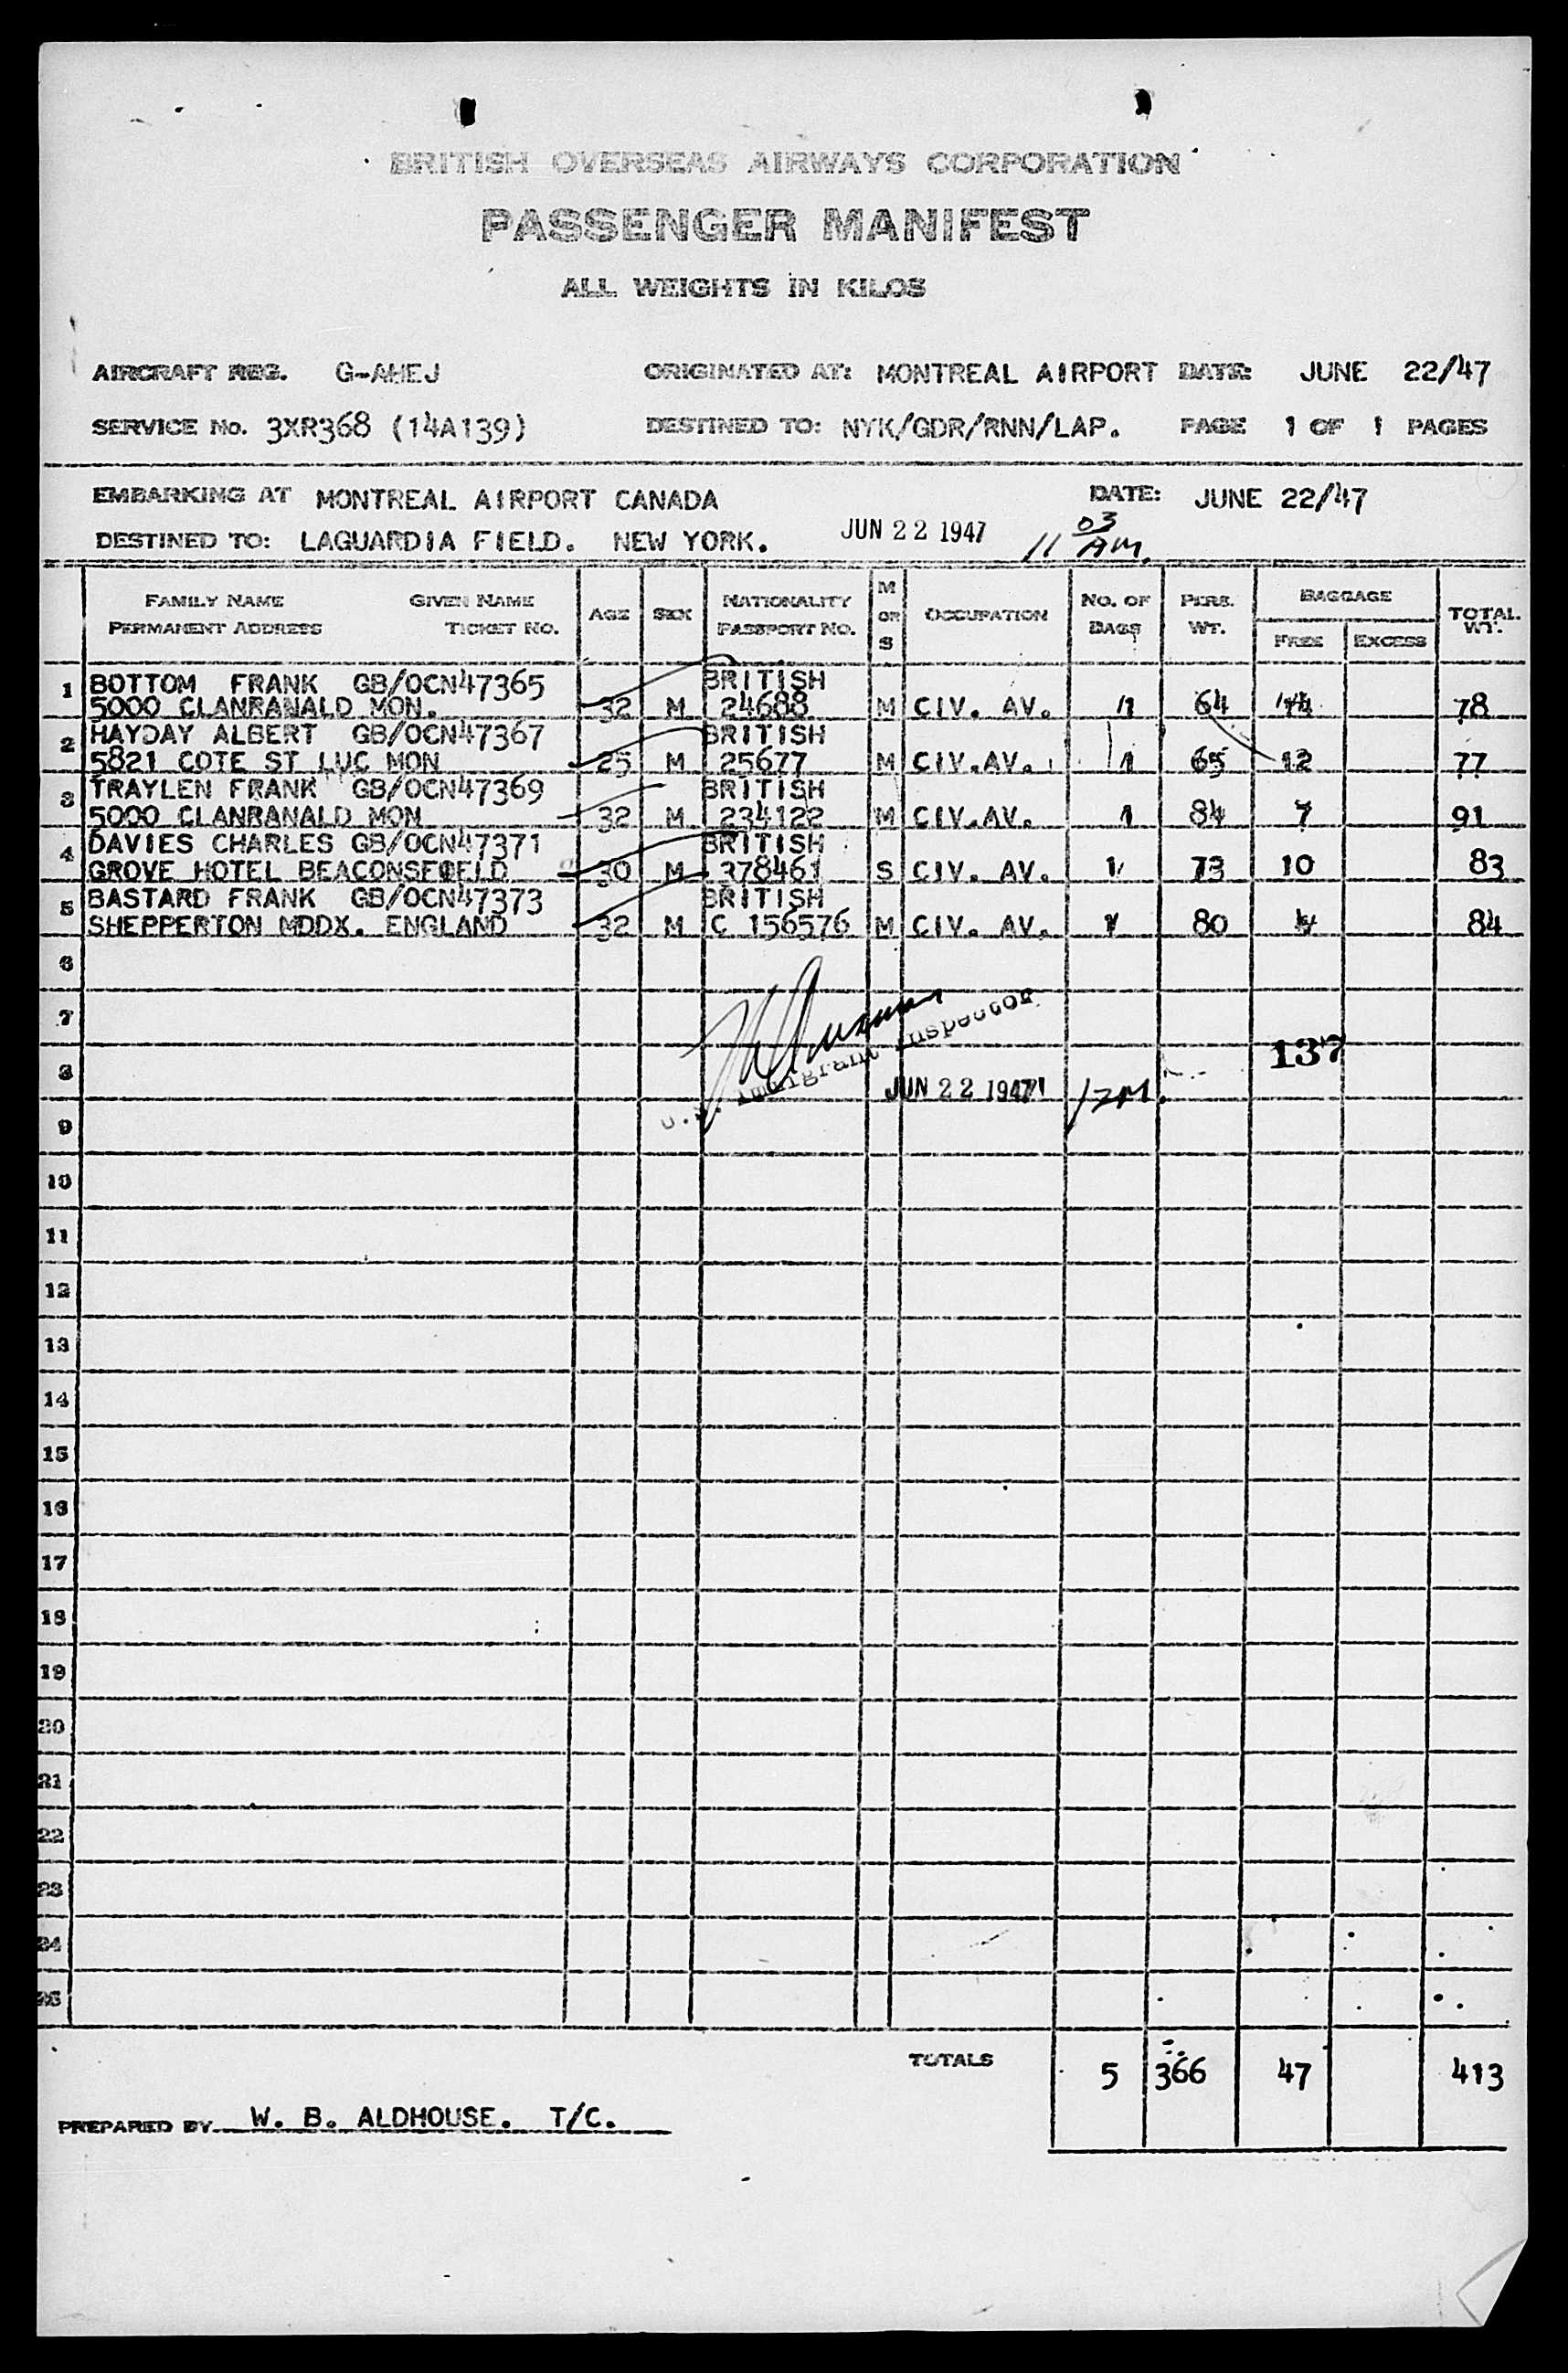 BRITISH OVERSEAS AIRWAYS CORPORATION
PASSENGER MANIFEST
ALL WEIGHTS IN KILOS
AIRCRAFT REG. G-AHEJ ORIGINATED AT: MONTREAL AIRPORT DATE: JUNE 22/47
SERVICE No. 3XR368 (14A139) DESTINED TO: NYK/GDR/RNN/LAP. PAGE 1 OF 1 PAGES
EMBARKING AT MONTREAL AIRPORT CANADA DATE: JUNE 22/47
DESTINED TO: LAGUARDIA FIELD. NEW YORK. JUN 22 1947 11 03 AM.
FAMILY NAME GIVEN NAME AGE SEX NATIONALITY M OR S OCCUPATION NO. OF BAGS PERS. WT. BAGGAGE TOTAL WT.
PERMANENT ADDRESS TICKET NO. PASSPORT NO. FREE EXCESS
1 BOTTOM FRANK GB/OCN47365 BRITISH
5000 CLANRANALD MON. 32 M 24688 M CIV. AV. 1 64 14 78
2 HAYDAY ALBERT GB/OCN47367 BRITISH
5821 COTE ST LUC MON 25 M 25677 M CIV.AV. 1 65 12 77
3 TRAYLEN FRANK GB/OCN47369 BRITISH
5000 CLANRANALD MON 32 M 234122 M CIV.AV. 1 84 7 91
4 DAVIES CHARLES GB/OCN47371 BRITISH
GROVE HOTEL 30 M 378461 S CIV. AV. 1 73 10 83
5 BASTARD FRANK GB/OCN47373 BRITISH
SHEPPERTON MDDX. ENGLAND 32 M C 156576 M CIV. AV. 1 80 4 84
6
7
U.S. Immigrant Inspector
137
8
JUN 22 1947 12M.
9
10
11
12
13
14
15
16
17
18
19
20
21
22
23
24
25
TOTALS 5 366 47 413
PREPARED BY W. B. ALDHOUSE. T/C.